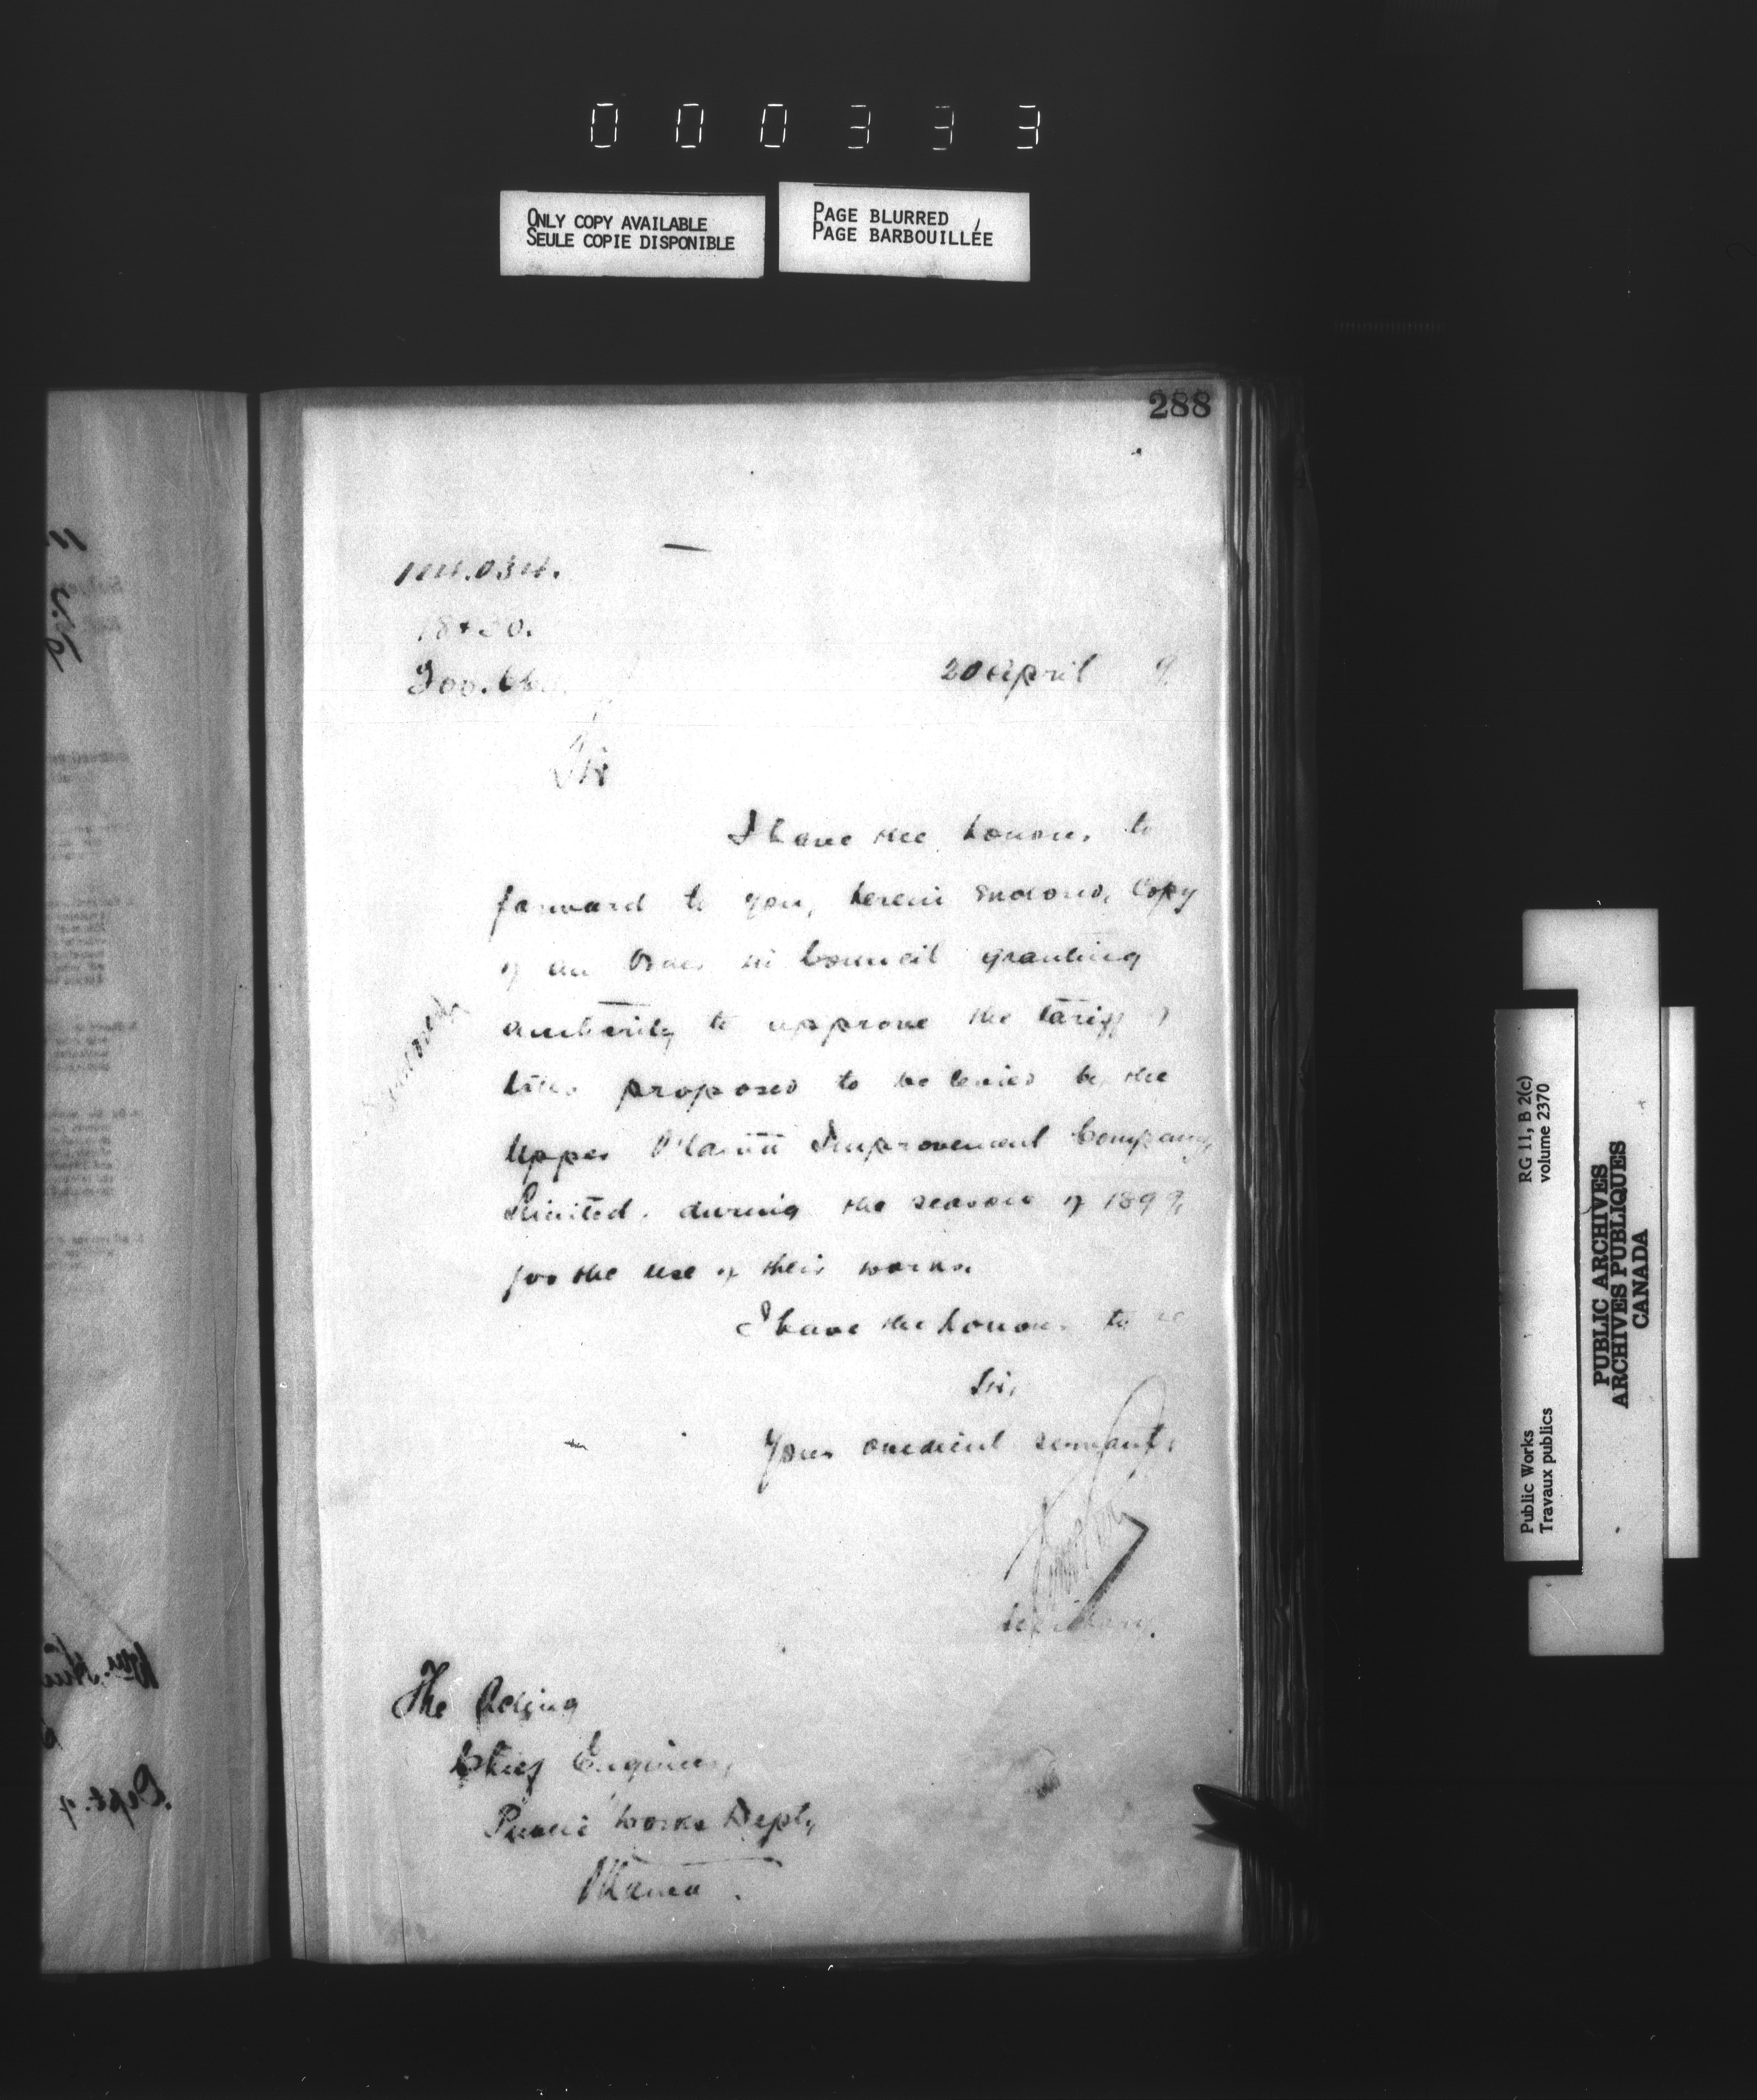 000333
ONLY COPY AVAILABLE
SEULE COPIE DISPONIBLE
PAGE BLURRED
PAGE BARBOUILLÉE
288
20 April 9
Sir
I have the honour to
forward to you, herein enclosed, Copy
of an Order in Council granting
authority to approve the tariff of
tolls proposed to be levied by the
Upper Ottawa Improvement Company,
Limited, during the season of 1899,
for the use of their works.
I have the honour to be
Sir,
Your obedient servant,
Secretary.
The Acting
Chief Engineer,
Public Works Dept,
Ottawa.
Dept. of
Public Works
Travaux publics
RG 11, B 2(c)
volume 2370
PUBLIC ARCHIVES
ARCHIVES PUBLIQUES
CANADA